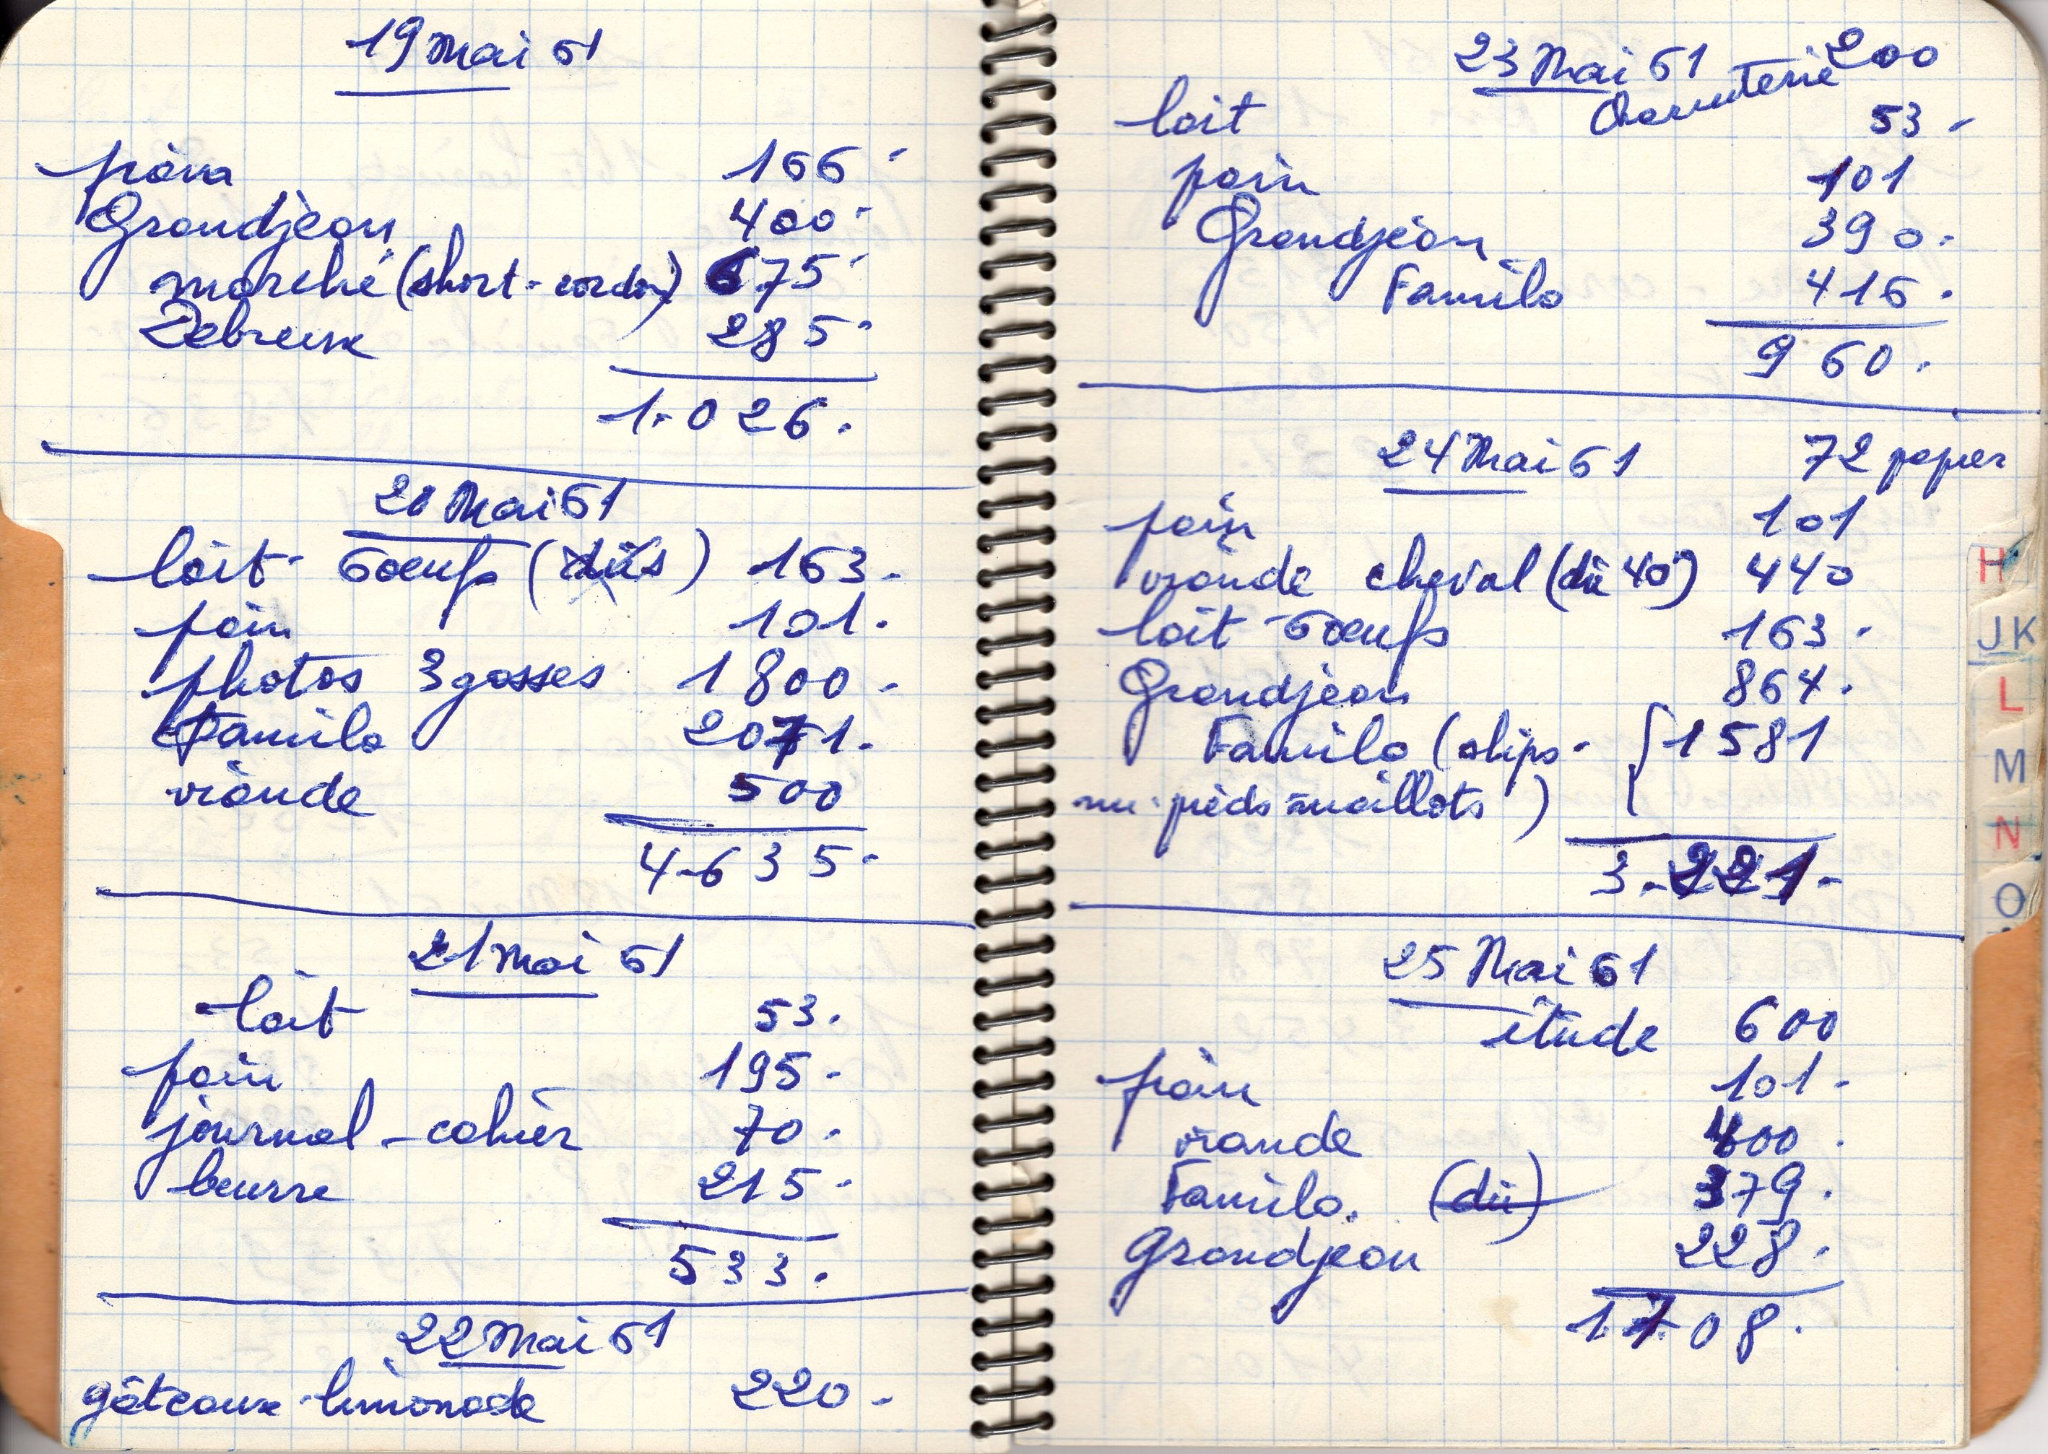 19 Mai 61
pain 166.
Grandjean 400.
marché (short - cordon) 675.
Debreux 285.
1.026.
20 Mai 61
lait - 6 oeufs (dûs) 163.
pain 101.
photos 3 gosses 1800.
Familo 2071.
viande 500
4.635.
21 Mai 61
lait 53.
pain 195.
journal - cahier 70.
beurre 215.
533.
22 Mai 61
gâteaux limonade 220.
23 Mai 61
Charcuterie 200
lait 53.
pain 101
Grandjean 390.
Familo 416.
960.
24 Mai 61 72 papier
pain 101
viande cheval (dû 40) 440
lait - 6 oeufs 163.
Grandjean 864.
Familo (slips - 1581
nu-pieds maillots)
3.221.
25 Mai 61
étude 600
pain 101.
viande 400.
Familo. (dû) 379.
Grandjean 228.
1.708.
H
JK
L
M
N
O